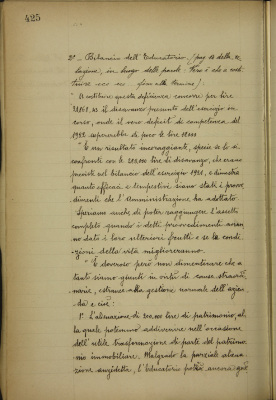 425
2° - Bilancio dell'Educatorio (pag. 12 della re-
lazione, in luogo delle parole: "Non è che a costi-
tuire ecc. ecc. fino alla
"A costituire questa deficienza concorre per lire
il disavanzo presunto dell'esercizio in
corso, onde il vero deficit di competenza del
1922 supererebbe di poco le lire
"È un risultato incoraggiante, specie se lo si
confronti con le 200.000 lire di disavanzo, che erano
previste nel bilancio dell'esercizio 1921, e dimostra
quanto efficaci e tempestivi siano stati i provve-
dimenti che l'Amministrazione ha adottato.
Speriamo anche di poter raggiungere l'assetto
completo quando i detti provvedimenti avran-
no dato i loro ulteriori frutti e se le condi-
zioni della vita miglioreranno.
"È doveroso però non dimenticare che a
tanto siamo giunti in virtù di cause straordi-
narie, estranee alla gestione normale dell'azien-
da e cioè:
1° L'alienazione di 300.000 lire di patrimonio, al-
la quale potemmo addivenire nell'occasione
dell'utile trasformazione di parte del patrimo-
nio immobiliare. Malgrado la parziale aliena-
zione anzidetta, l'Educatorio potrà ancora